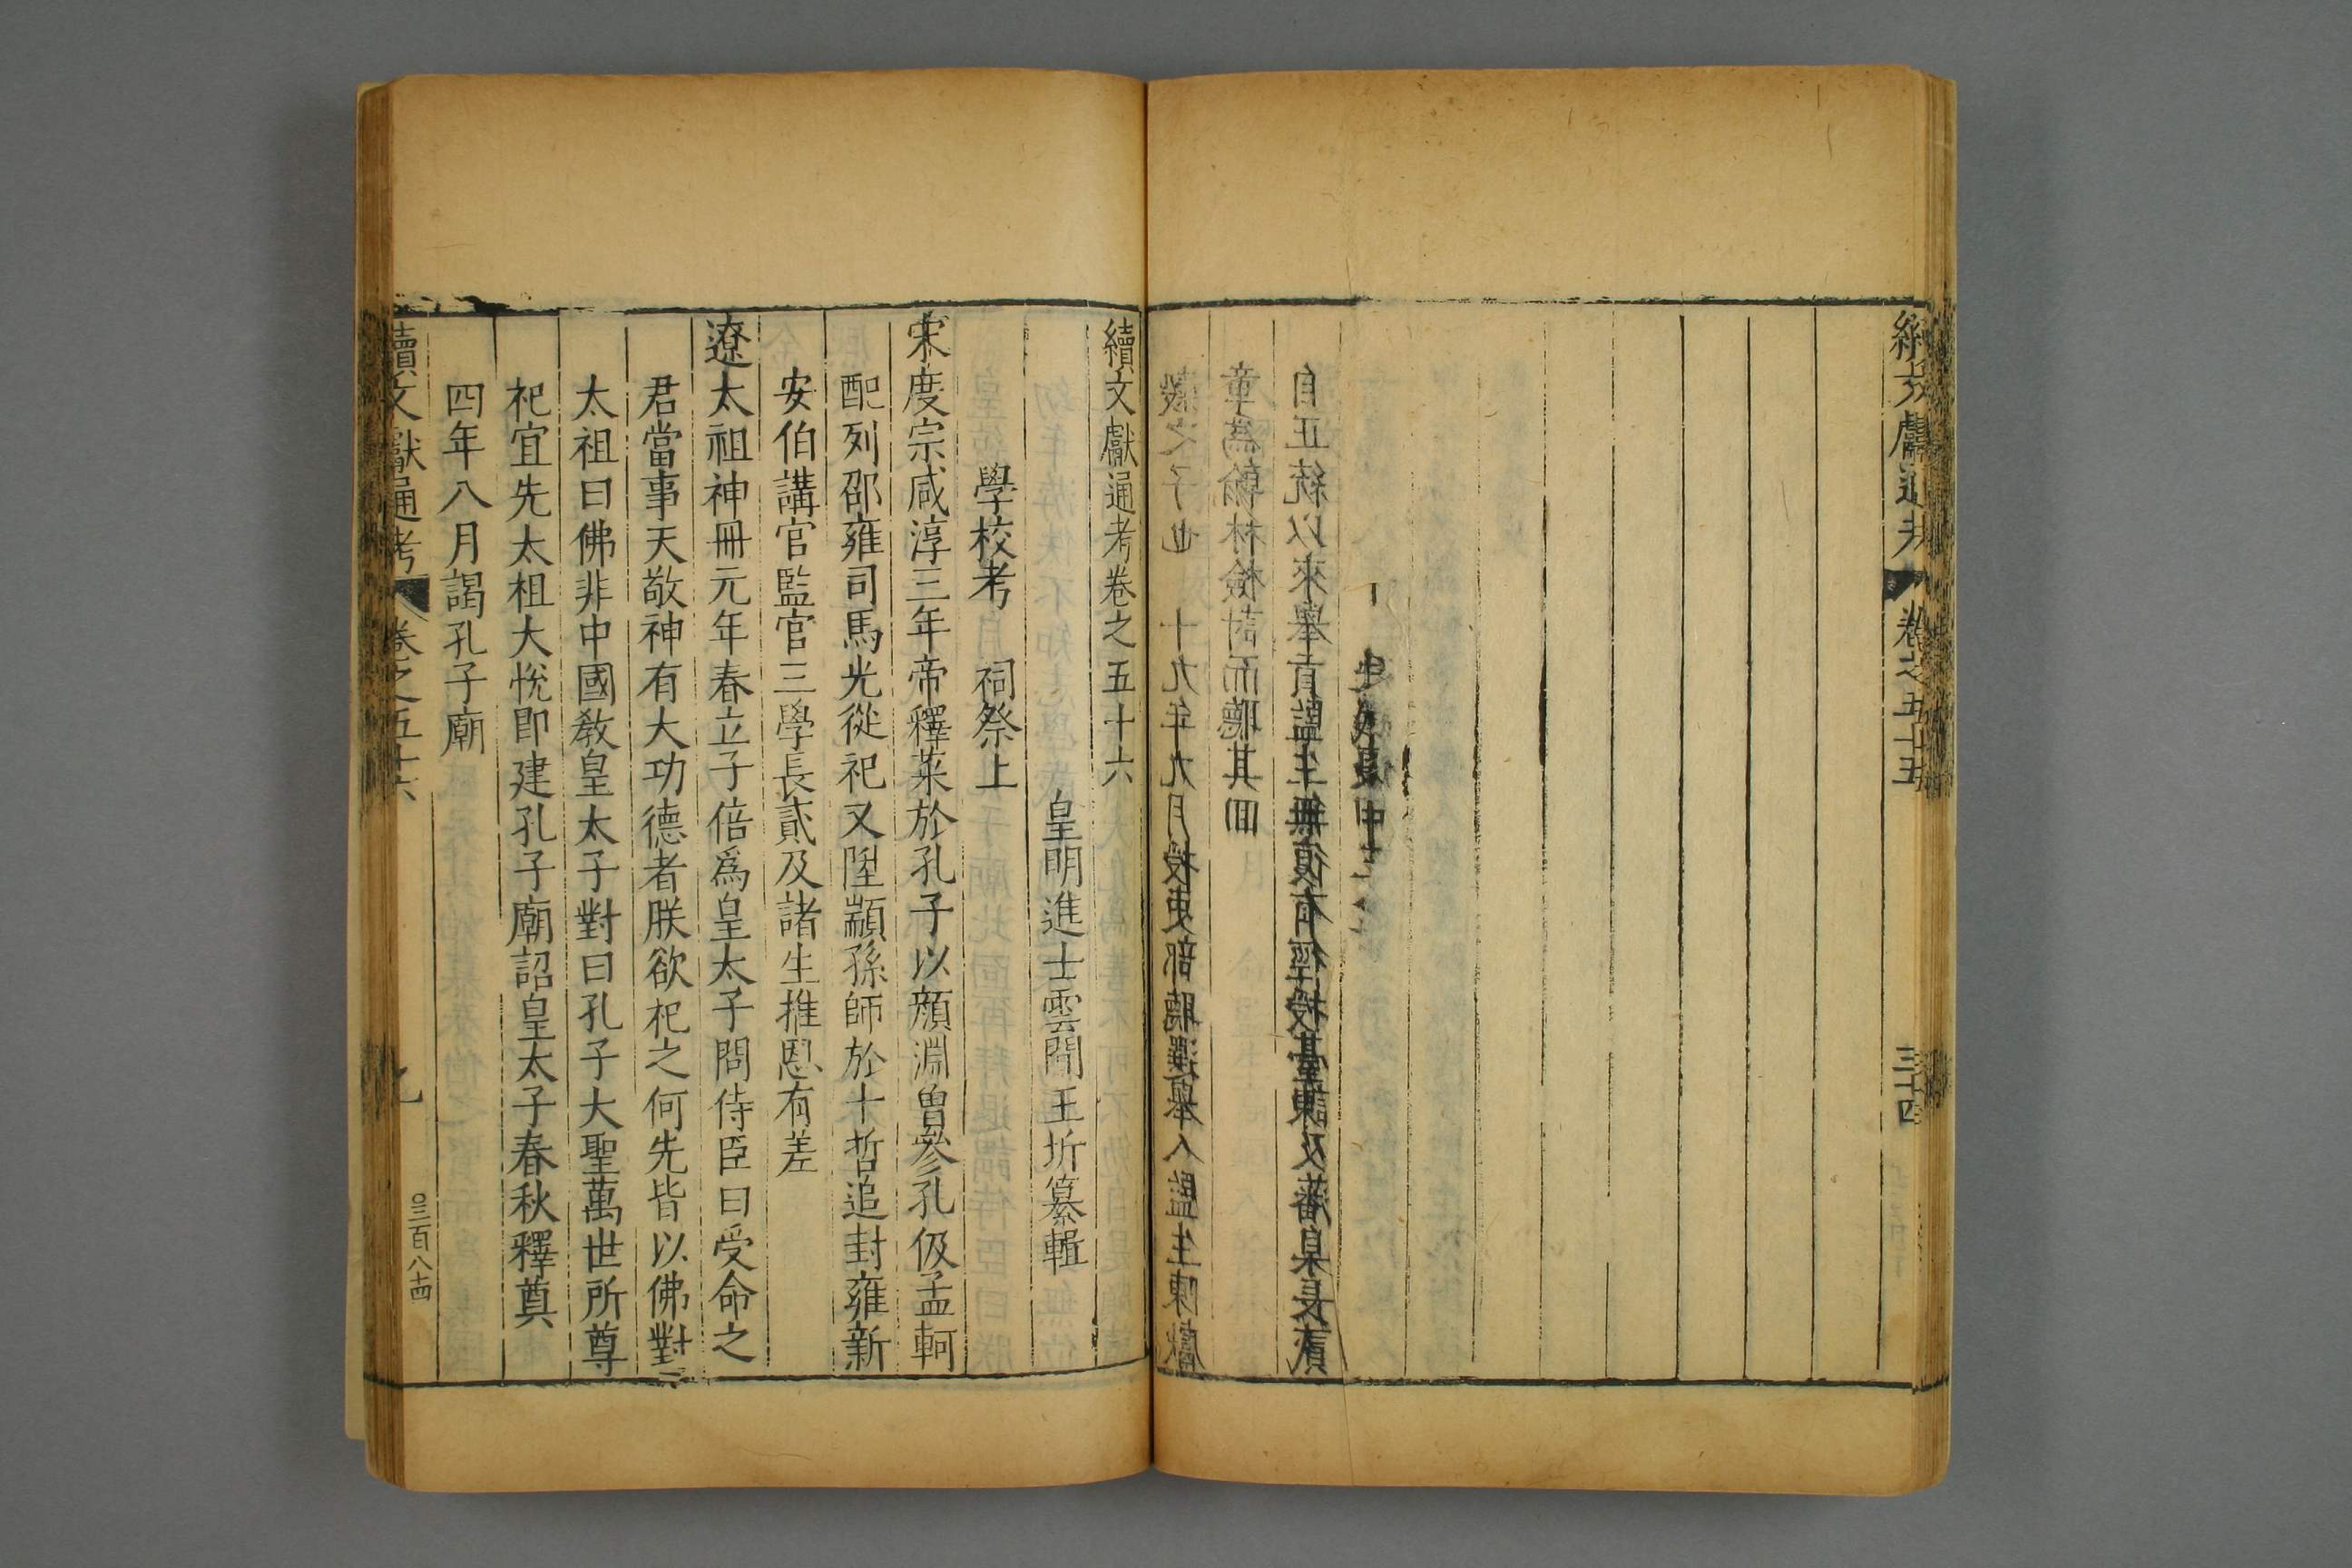 續文獻通考
卷之五十五
三十四
續文獻通考卷之五十六
皇明進士雲間王圻纂輯
學校考 祠祭上
宋度宗咸淳三年帝釋菜於孔子以顏淵曾參孔伋孟軻
配列邵雍司馬光從祀又陞顓孫師於十哲追封雍新
安伯講官監官三學長貳及諸生推恩有差
遼太祖神冊元年春立子倍爲皇太子問侍臣曰受命之
君當事天敬神有大功德者朕欲祀之何先皆以佛對
太祖曰佛非中國敎皇太子對曰孔子大聖萬世所尊
祀宜先太祖大悅即建孔子廟詔皇太子春秋釋奠
四年八月謁孔子廟
續文獻通考
卷之五十六
〇三百八十四